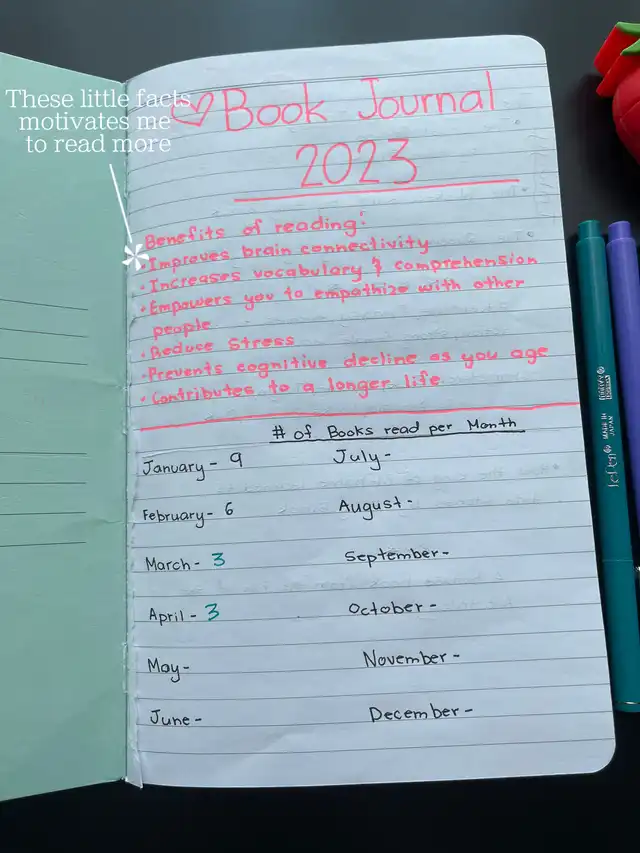 These little facts
motivates me
to read more
Book Journal
2023
Benefits of reading:
• Improves brain connectivity
• Increases vocabulary & comprehension
• Empowers you to empathize with other
people
• Reduce stress
• Prevents cognitive decline as you age
• Contributes to a longer life
# of Books read per Month
January - 9
July -
February - 6
August -
March - 3
September -
April - 3
October -
May -
November -
June -
December -
MADE IN
JAPAN